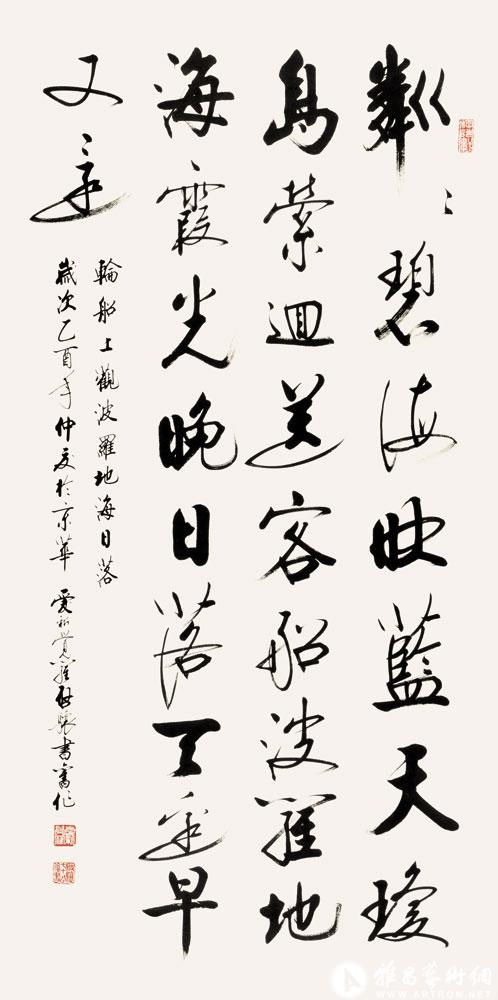 粼〻碧海映藍天瓊
島縈迴送客船波羅地
海霞光晚日落早
又
輪船上觀波羅地海日落
歲次乙酉年仲夏於京華 愛新覺羅啟驤書舊作
雅昌藝術網
WWW.ARTRON.NET